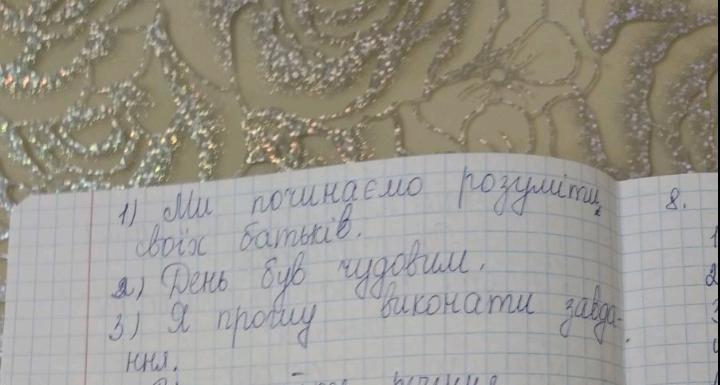 1) Ми починаємо розуміти
своїх батьків.
2) День був чудовим.
3) Я прошу виконати завда-
ння.
8.